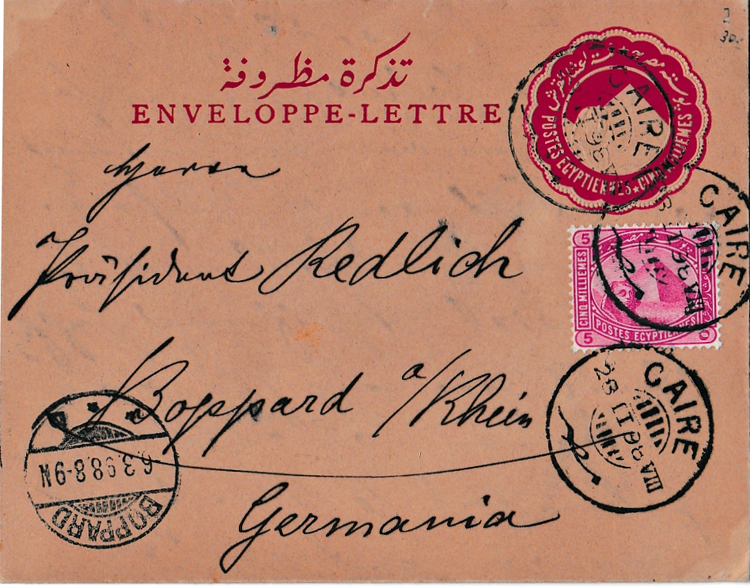 تذكرة مظروفة
ENVELOPPE-LETTRE
POSTES EGYPTIENNES ★ CINQ MILLIEMES
CAIRE
Herrn
Präsident Redlich
CAIRE
5 5
CINQ MILLIEMES
POSTES EGYPTIENNES
5
Boppard a/Rhein
CAIRE
28 II 98 VIII
6.3.98.8-9N
BOPPARD
Germania